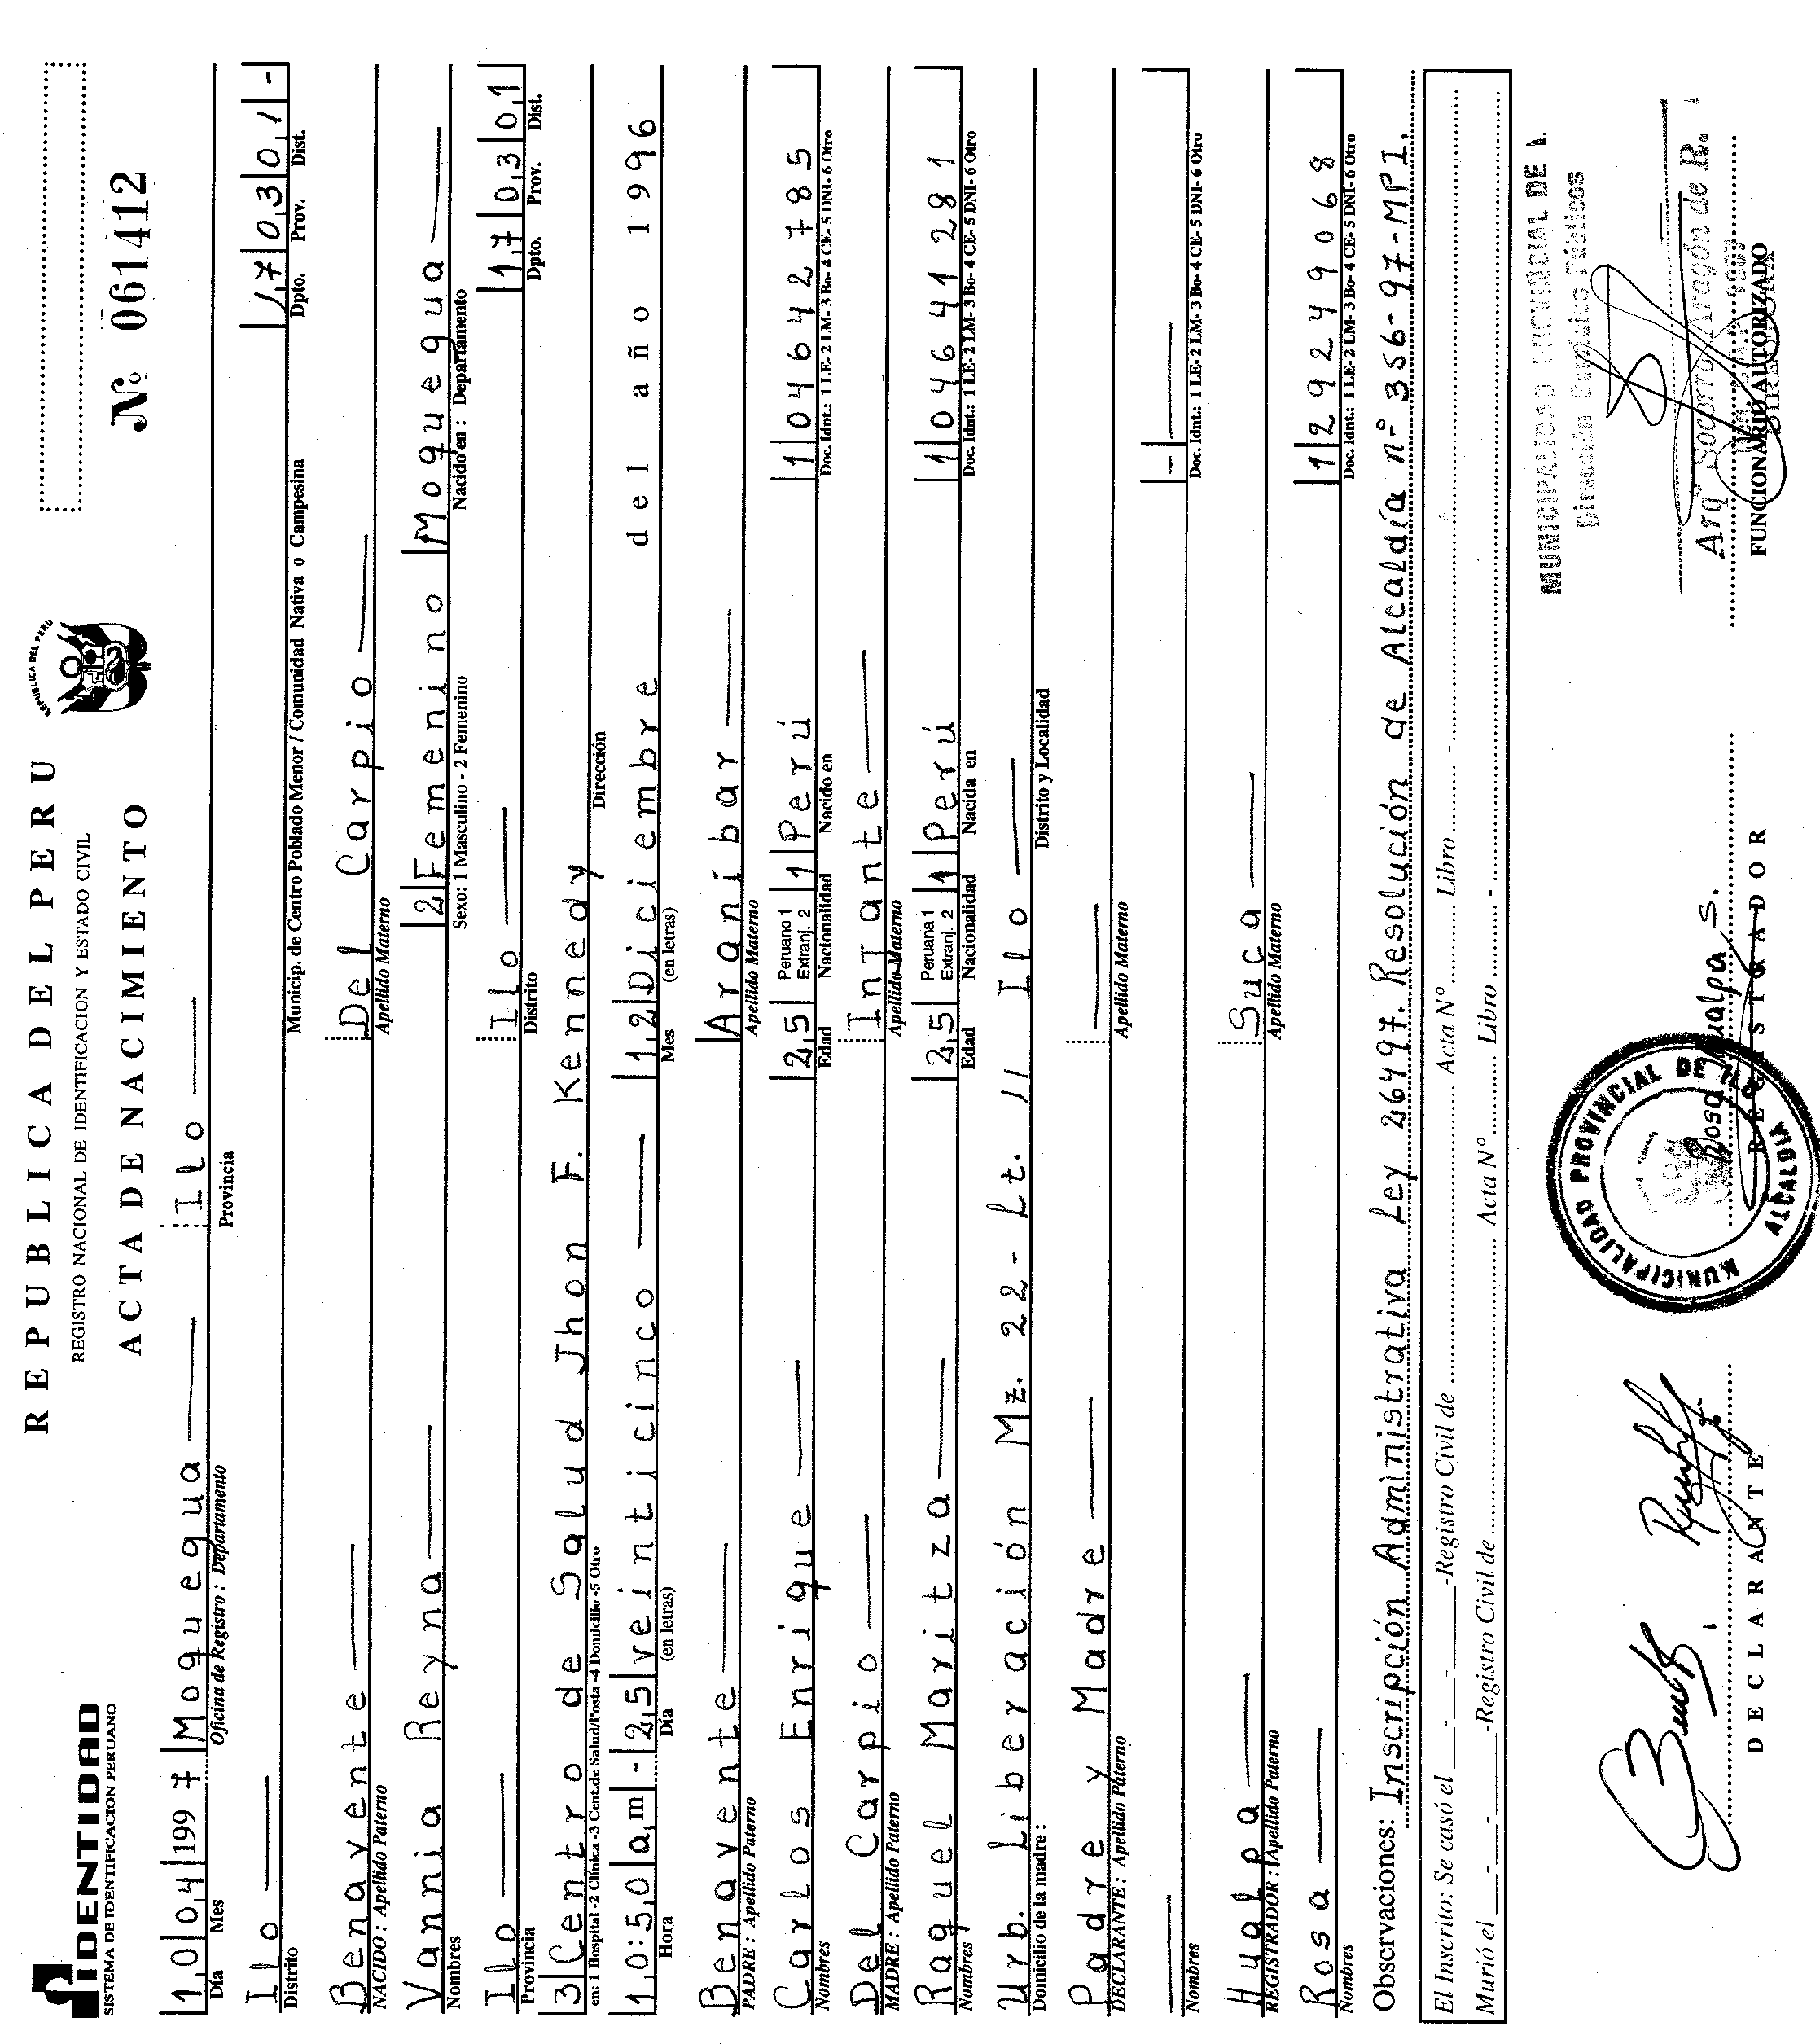 REPUBLICA DEL PERU
REGISTRO NACIONAL DE IDENTIFICACION Y ESTADO CIVIL
ACTA DE NACIMIENTO
REPUBLICA DEL PERU
IDENTIDAD
SISTEMA DE IDENTIFICACION PERUANO
Nº 061412
10 04 1997 Moquegua Ilo
Día Mes Oficina de Registro : Departamento Provincia
Ilo 17 03 01 -
Distrito Municip. de Centro Poblado Menor / Comunidad Nativa o Campesina Dpto. Prov. Dist.
Benavente Del Carpio
NACIDO : Apellido Paterno Apellido Materno
Vannia Reyna 2 Femenino Moquegua
Nombres Sexo: 1 Masculino - 2 Femenino Nacido en : Departamento
Ilo Ilo 17 03 01
Provincia Distrito Dpto. Prov. Dist.
3 Centro de Salud Jhon F. Kennedy
en: 1 Hospital -2 Clínica -3 Cent.de Salud/Posta -4 Domicilio -5 Otro Dirección
10:50 am - 25 veinticinco 12 Diciembre del año 1996
Hora Día (en letras) Mes (en letras)
Benavente Araníbar
PADRE : Apellido Paterno Apellido Materno
Carlos Enrique 25 Peruano 1 Extranj. 2 1 Perú 1 04642785
Nombres Edad Nacionalidad Nacido en Doc. Idnt.: 1 LE- 2 LM- 3 Bo- 4 CE- 5 DNI- 6 Otro
Del Carpio Infante
MADRE : Apellido Paterno Apellido Materno
Raquel Maritza 25 Peruana 1 Extranj. 2 1 Perú 1 04641281
Nombres Edad Nacionalidad Nacida en Doc. Idnt.: 1 LE- 2 LM- 3 Bo- 4 CE- 5 DNI- 6 Otro
Urb. Liberación Mz. 22 - Lt. 11 Ilo
Domicilio de la madre : Distrito y Localidad
Padre y Madre
DECLARANTE : Apellido Paterno Apellido Materno
Nombres Doc. Idnt.: 1 LE- 2 LM- 3 Bo- 4 CE- 5 DNI- 6 Otro
Hualpa Suca
REGISTRADOR : Apellido Paterno Apellido Materno
Rosa 1 29249068
Nombres Doc. Idnt.: 1 LE- 2 LM- 3 Bo- 4 CE- 5 DNI- 6 Otro
Observaciones: Inscripción Administrativa Ley 26497. Resolución de Alcaldía nº 356-97-MPI.
El Inscrito: Se casó el - - -Registro Civil de Acta Nº Libro -
Murió el - - -Registro Civil de Acta Nº Libro -
MUNICIPALIDAD PROVINCIAL DE I
Dirección Servicios Públicos
MUNICIPALIDAD PROVINCIAL DE ILO
ALCALDIA
Rosa Hualpa S.
Arqº Socorro Aragón de R.
DIRECTORA
DECLARANTE REGISTRADOR FUNCIONARIO AUTORIZADO